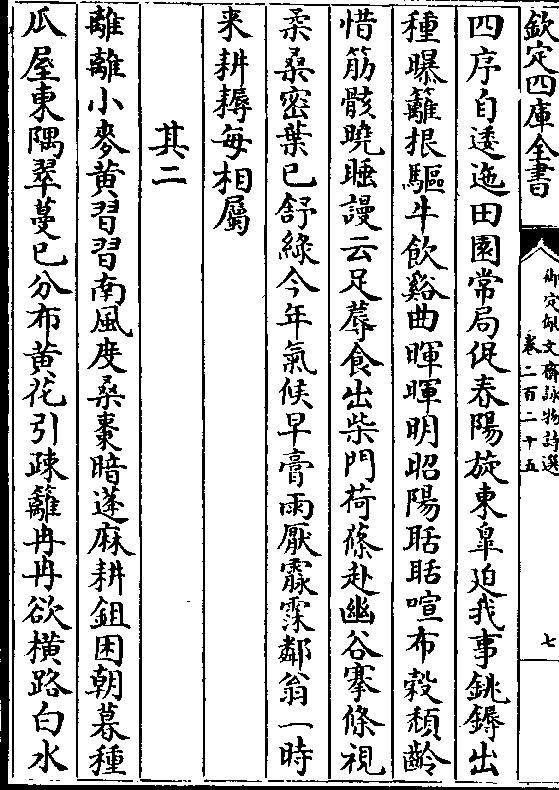 欽定四庫全書
御定佩文齋詠物詩選
卷二百二十五
七
四序自逶迤田園常局促春陽旋東臯迫我事銚鎒出
種曝籬根驅牛飲谿曲暉暉明昭陽聒聒喧布穀頹齡
惜筋骸曉睡謾云足蓐食出柴門荷蓧赴幽谷搴條視
柔桑密葉已舒綠今年氣候早膏雨厭霡霂鄰翁一時
来耕耨每相屬
其二
離離小麥黄習習南風度桑棗暗蓬麻耕鉏困朝暮種
瓜屋東隅翠蔓已分布黄花引疎籬冉冉欲橫路白水